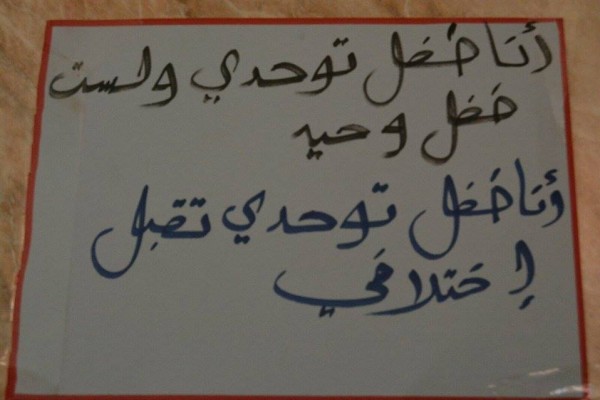 أنا طفل توحدي ولست
طفل وحيد
أنا طفل توحدي تقبل
إختلافي